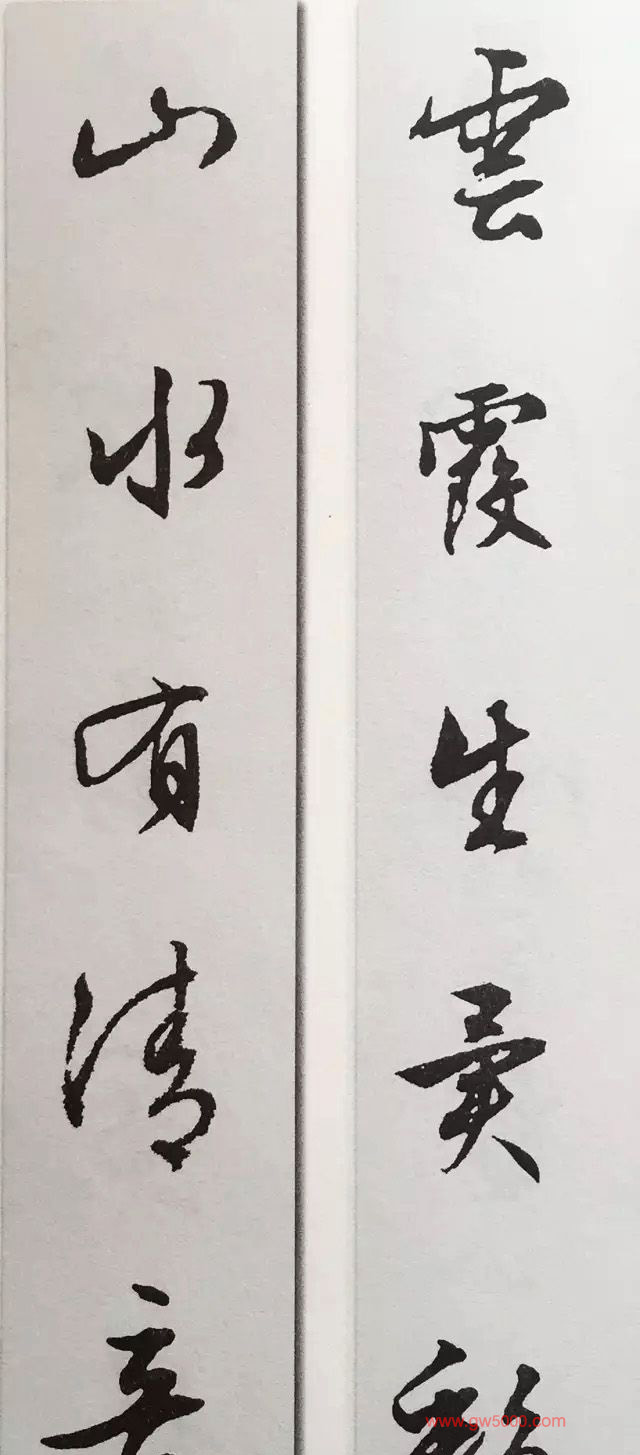 雲霞生異彩
山水有清音
www.gw5000.com